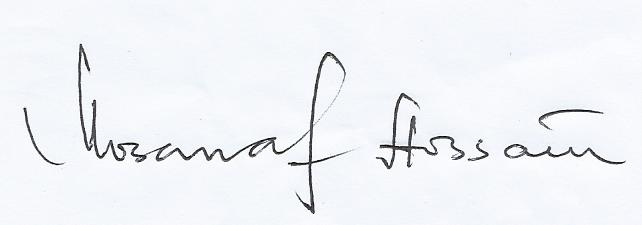 Mosarraf Hossain